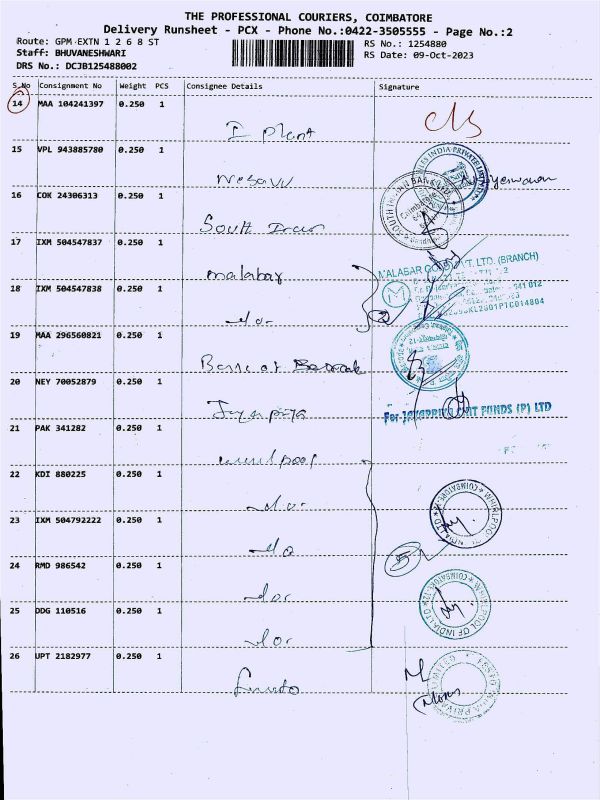 THE PROFESSIONAL COURIERS, COIMBATORE
Delivery Runsheet - PCX - Phone No.:0422-3505555 - Page No.:2
Route: GPM EXTN 1 2 6 8 ST
RS No.: 1254880
Staff: BHUVANESHWARI
RS Date: 09-Oct-2023
DRS No.: DCJB125488002
S.No Consignment No Weight PCS Consignee Details Signature
14 MAA 104241397 0.250 1
I plant
15 VPL 943885780 0.250 1
16 COK 24306313 0.250 1
South
17 IXM 504547837 0.250 1
malabar
MALABAR LTD. (BRANCH)
18 IXM 504547838 0.250 1
do
2
19 MAA 296560821 0.250 1
Bank of
20 NEY 70052879 0.250 1
For FUNDS (P) LTD
21 PAK 341282 0.250 1
22 KDI 880225 0.250 1
do
23 IXM 504792222 0.250 1
do
5
24 RMD 986542 0.250 1
do
25 DDG 110516 0.250 1
do
WHIRLPOOL OF INDIA LTD
26 UPT 2182977 0.250 1